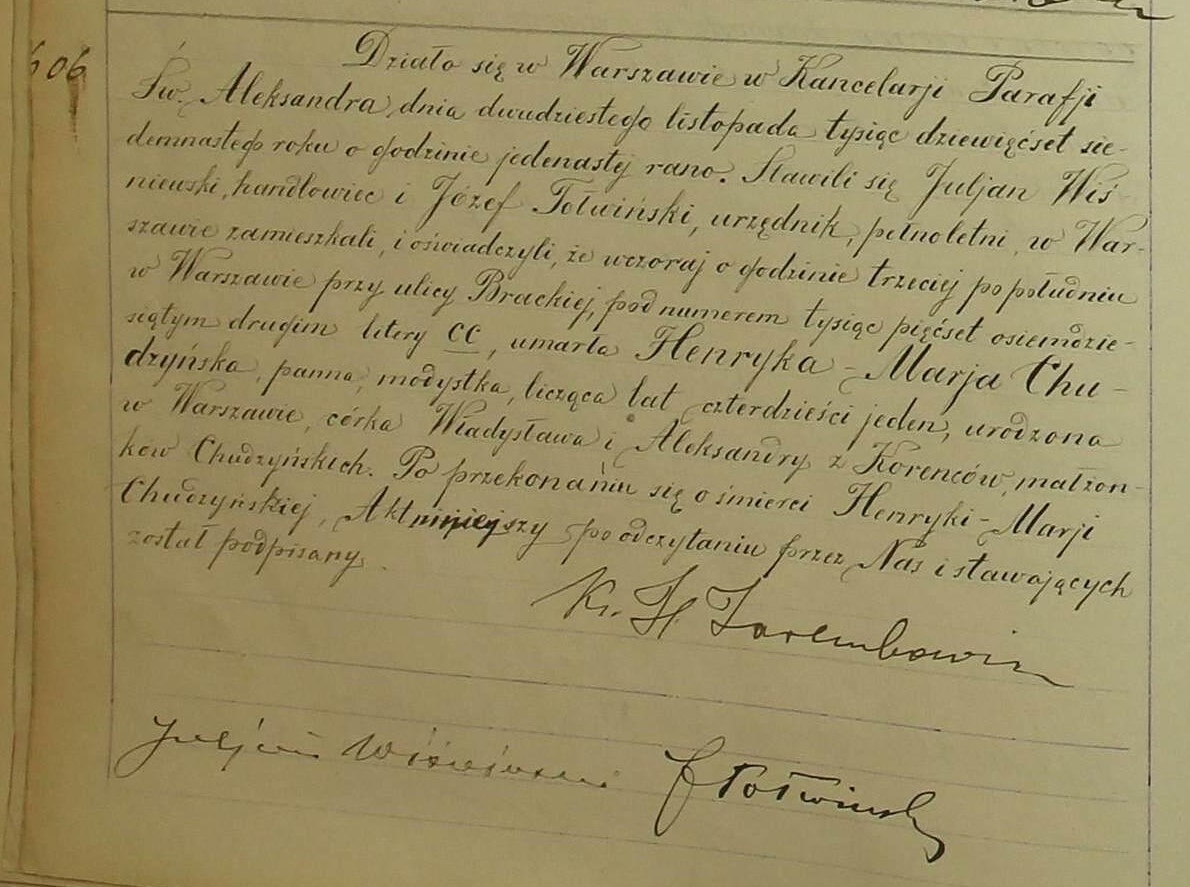 606
Działo się w Warszawie w Kancelarji Parafji
Św. Aleksandra dnia dwudziestego listopada tysiąc dziewięćset sie-
demnastego roku o godzinie jedenastej rano. Stawili się Juljan Wiś-
niewski, handlowiec i Józef Tołwiński, urzędnik, pełnoletni, w War-
szawie zamieszkali, i oświadczyli, że wczoraj o godzinie trzeciej po południu
w Warszawie przy ulicy Brackiej, pod numerem tysiąc pięćset osiemdzie-
siątym drugim litery CC, umarła Henryka-Marja Chu-
dzyńska, panna, modystka, licząca lat czterdzieści jeden, urodzona
w Warszawie, córka Władysława i Aleksandry z Korenców, małżon-
ków Chudzyńskich. Po przekonaniu się o śmierci Henryki-Marji
Chudzyńskiej, Akt niniejszy po odczytaniu przez Nas i stawających
został podpisany.
Ks. H
Juljan Wiśniewski J Tołwiński